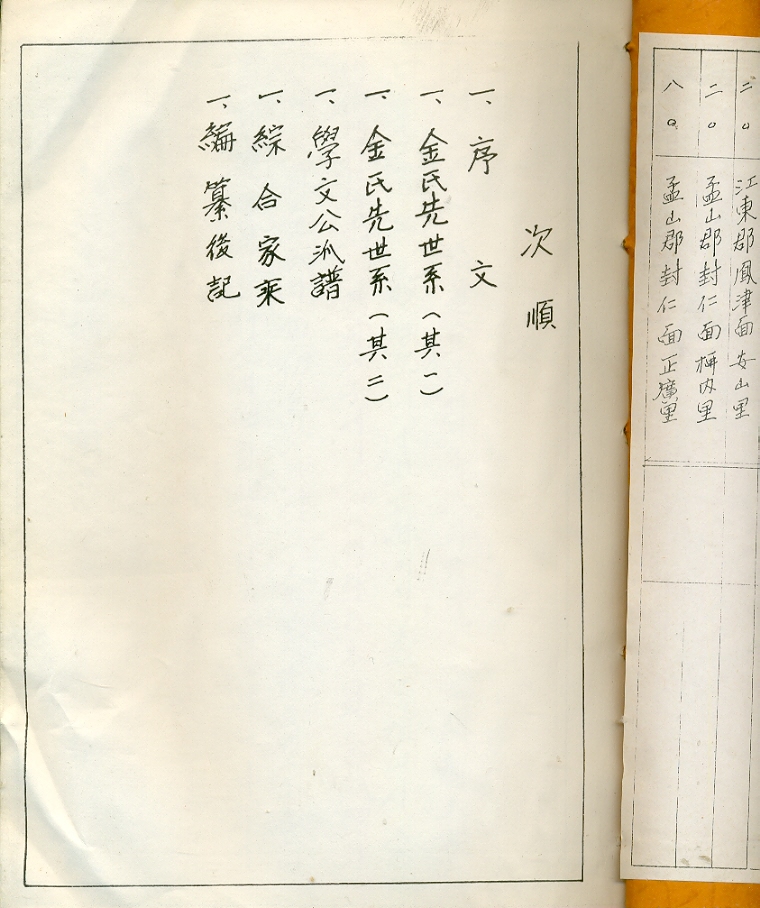 二〇 江東郡鳳津面安山里
二〇 孟山郡封仁面
八〇 孟山郡封仁面
次順
一、序文
一、金氏先世系（其一）
一、金氏先世系（其二）
一、學文公派譜
一、綜合家乘
一、編纂後記